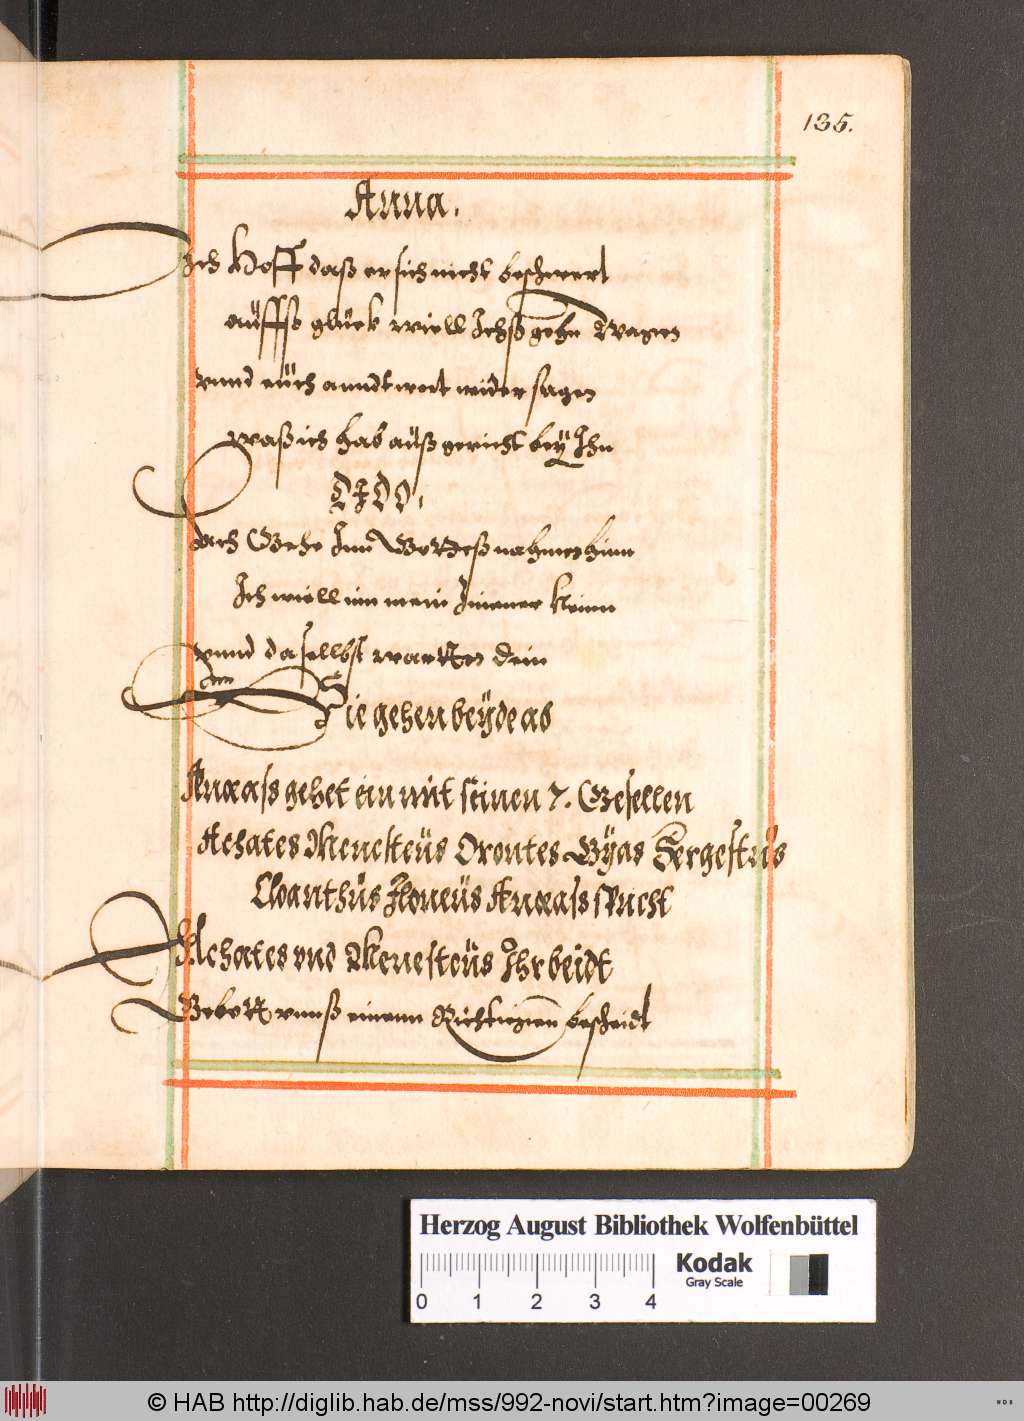 135.
Anna.
Ich Hoff daß er sich nicht beschwert
auffs glück will Ichß gehn Wagen
vnnd eüch anndtwort wider sagen
waß ich hab außgericht bey Ihn
DIDO.
Ach Gehe Inn Gotteß nahmen hinn
Ich will inn mein Zimmer klein
vnnd daselbst wartten dein
Sie gehen beÿde ab
Aenaeass gehet ein mit seinen 7. Gesellen
Achates Menesteüs Orontes Gÿas Sergestus
Cloanthüs Iloneüs Aenaeass spricht
Achates vnd Menesteüs Ihr beidt
Gebett vnnß einenn Richtigenn bescheidt
Herzog August Bibliothek Wolfenbüttel
Kodak
Gray Scale
0 1 2 3 4
© HAB http://diglib.hab.de/mss/992-novi/start.htm?image=00269